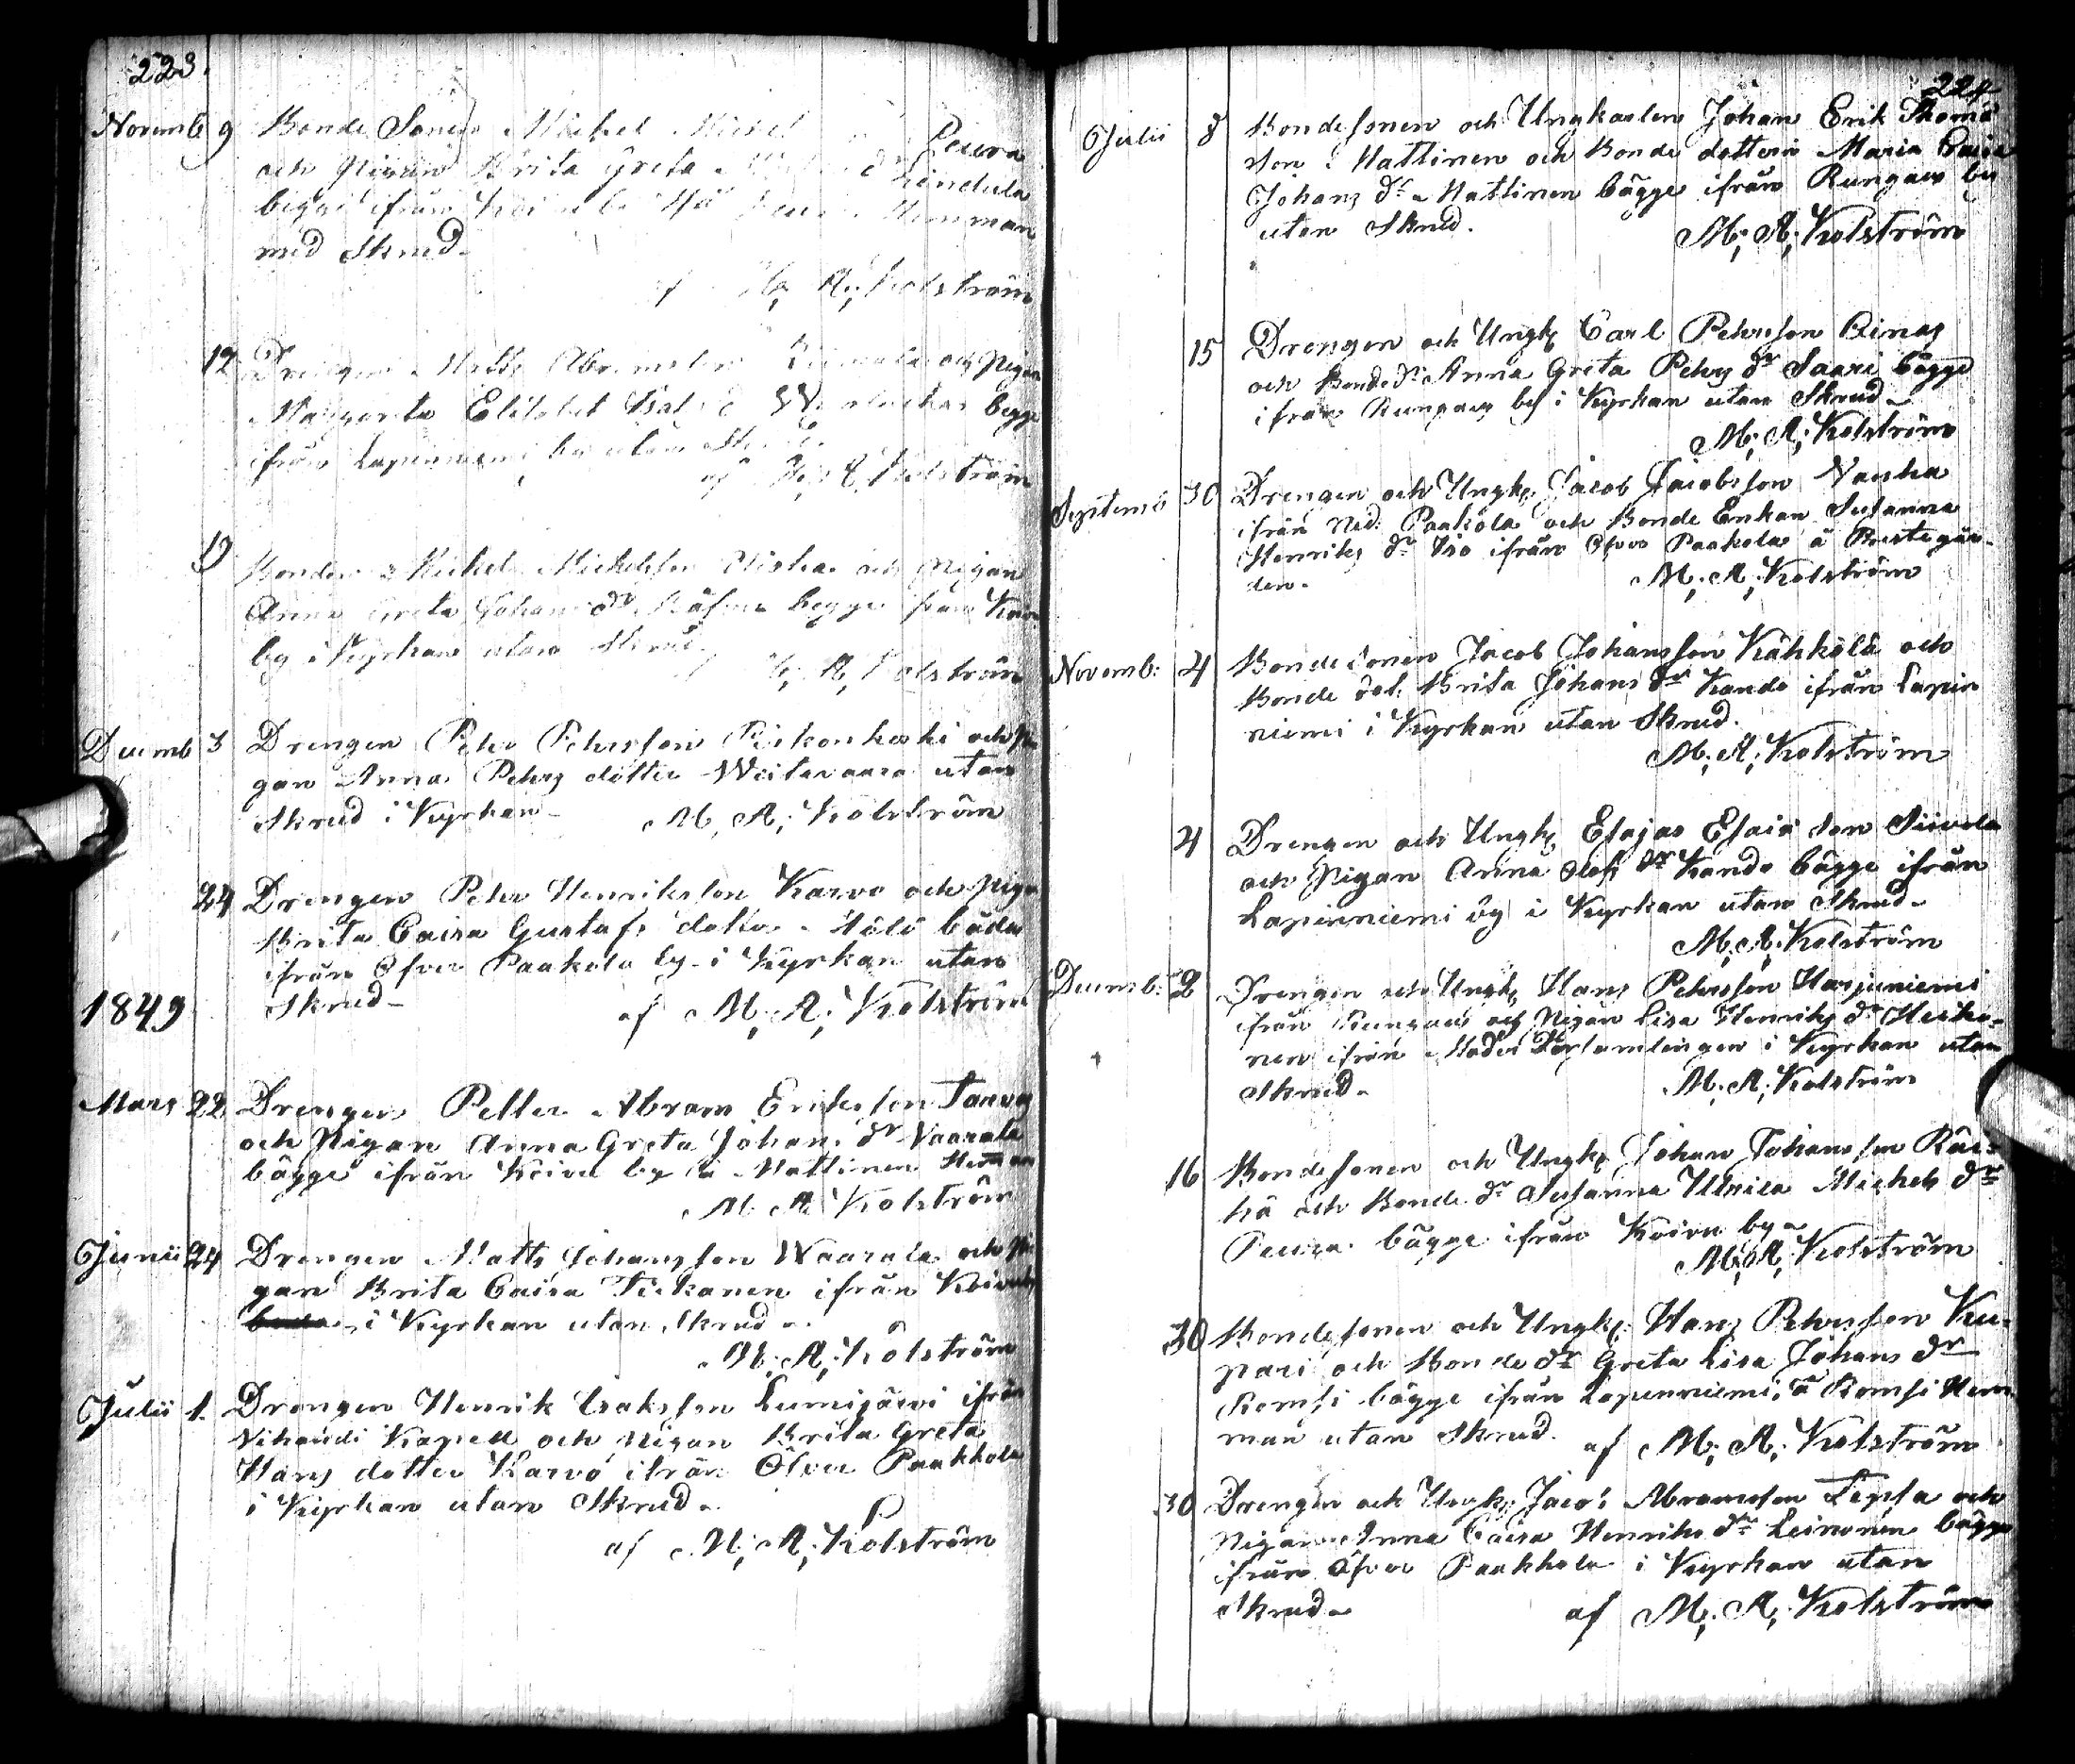 223.
Novemb 9 Bonde Sonen Michel Peura
och Pigan Brita Greta
bägge ifrån Hemman
med Skrud.
af M; A; Kolström
12 Drengen Matts Abramsson och Pigan
Margareta Elisabet begge
ifrån Lapinniemi by utan
af M; A; Kolström
19 Bonden Michel Michelsson och Pigan
Anna Greta Johans dr begge från Koivu
by i Kyrkan utan Skrud
M; A; Kolström
Decemb 3 Drengen Petter Pehrsson Piskonkoski och Pi
gan Anna Pehrs dotter Weitsivaara utan
Skrud i Kyrkan- M, A; Kolström
24 Drengen Peter Henriksson Karvo och Piga
Brita Caisa Gustafs dotter båda
ifrån Öfver Paakola by i Kyrkan utan
Skrud- af M; A; Kolström
1849
Mars 22 Drengen Petter Abram Eriksson
och Pigan Anna Greta Johans dr Vaarala
bägge ifrån Koivu by å Mattinen Heman
M A Kolström
Junii 24 Drengen Matts Johansson Waarala och Pi
gan Brita Caisa Tiekanen ifrån Koivu
i Kyrkan utan Skrud-
M; A; Kolström
Julii 1. Drengen Henrik Isaksson Lumijärvi ifrån
Kapell och Pigan Brita Greta
Hans dotter Karvo ifrån Öfver Paakkola
i Kyrkan utan Skrud.
af M; A; Kolström
224
Julii 8 Bondesonen och Ungkarlen Johan Erik Thomæ
son Mattinen och Bonde dottern Maria Caisa
Johans dr Mattinen bägge ifrån Rungaus by
utan Skrud.
M; A; Kolström
15 Drengen och Ungk; Carl Pehrsson
och Bonde dr Anna Greta Pehrs dr Saari bägge
ifrån Rungaus by i Kyrkan utan Skrud-
M; A; Kolström
Septemb 30 Drengen och Ungk; Jacob Jacobsson Vanha
ifrån Ned: Paakola och Bonde Enkan Susanna
Henriks dr Iso ifrån Öfver Paakola å Prestegår-
den. M; A; Kolström
Novemb: 4 Bonde Sonen Jacob Johansson Kähkölä och
Bonde dot. Brita Johans dr Kando ifrån Lapin
niemi i Kyrkan utan Skrud.
M; A; Kolström
4 Drengen och Ungk; Esajas Esaiæ Son Siivola
och Pigan Anna Olofs dr Kando bägge ifrån
Lapinniemi by i Kyrkan utan Skrud-
M; A; Kolström
Decemb: 2 Drengen och Ungk; Hans Pehrsson Harjuniemi
ifrån Rungaus och Pigan Lisa Henriks dr Heiko-
nen ifrån Moder Församlingen i Kyrkan utan
Skrud- M; A; Kolström
16 Bondesonen och Ungk; Johan Johansson Räi-
hä och Bonde dr Susanna Ulrica Michels dr
Peura bägge ifrån Koivu by-
M; A; Kolström
30 Bondesonen och Ungk; Hans Pehrsson Ku-
pari och Bonde dr Greta Lisa Johans dr
Romsi bägge ifrån Lapinniemi, å Romsi Hem
man utan Skrud. af M; A; Kolström
30 Drengen och Ungk; Jacob Abramsson Tepsa och
Pigan Anna Caisa Henriks dr Leinonen bägge
ifrån Öfver Paakkola i Kyrkan utan
Skrud- af M; A; Kolström